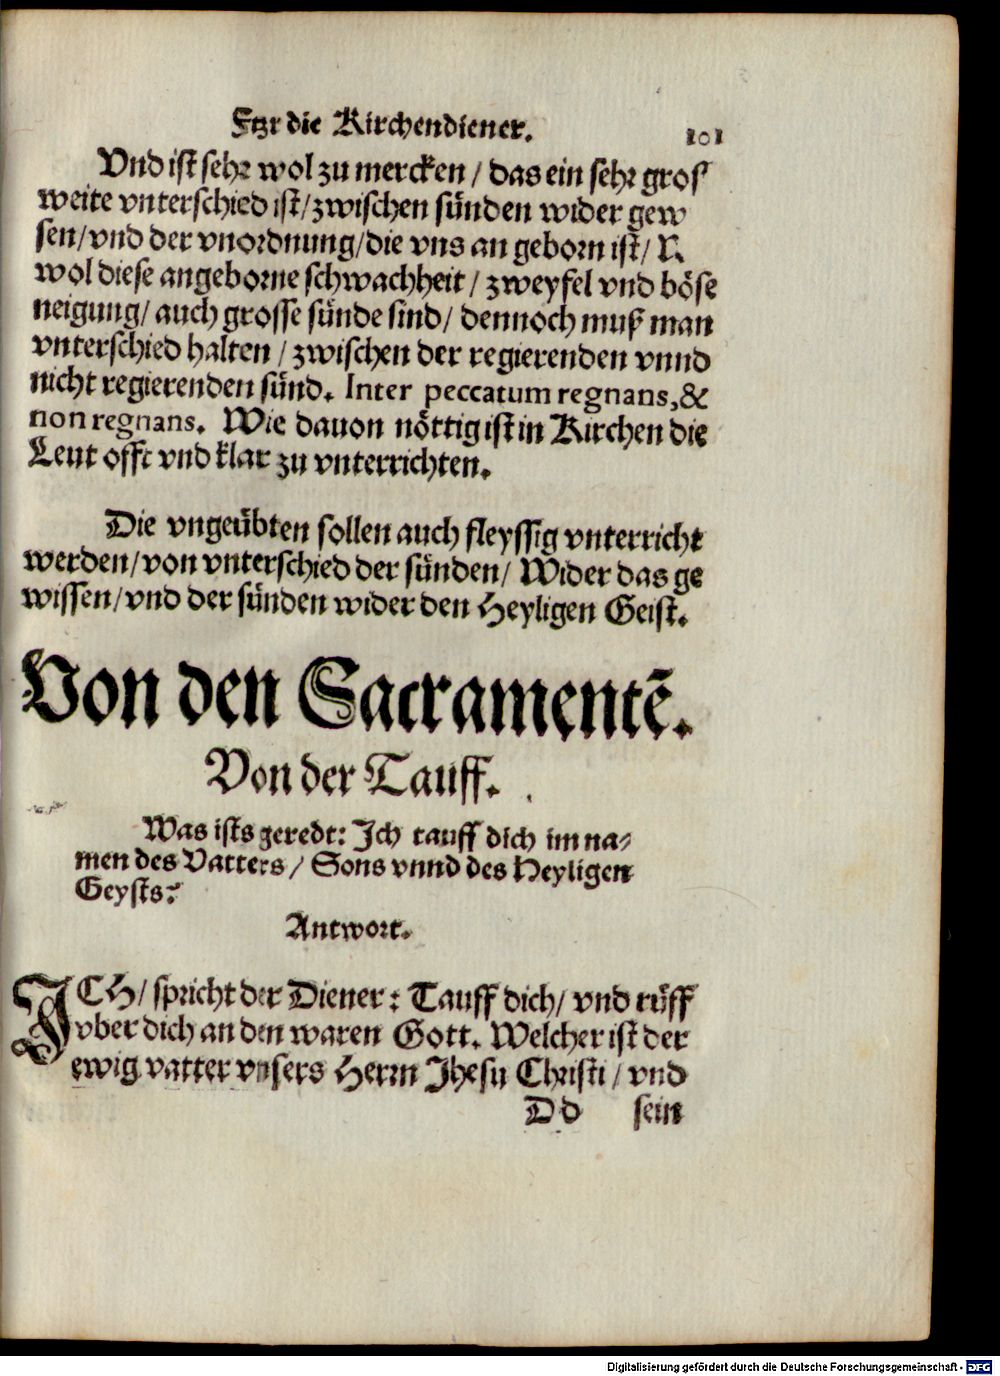 Für die Kirchendiener. 101
Vnd ist sehr wol zu mercken / das ein sehr gros
weite vnterschied ist / zwischen sünden wider gew
sen / vnd der vnordnung / die vns an geborn ist /
wol diese angeborne schwachheit / zweyfel vnd böse
neigung / auch grosse sünde sind / dennoch muß man
vnterschied halten / zwischen der regierenden vnnd
nicht regierenden sünd. Inter peccatum regnans, &
non regnans. Wie dauon nöttig ist in Kirchen die
Leut offt vnd klar zu vnterrichten.
Die vngeübten sollen auch fleyssig vnterricht
werden / von vnterschied der sünden / Wider das ge
wissen / vnd der sünden wider den Heyligen Geist.
Von den Sacramentē.
Von der Tauff.
Was ists geredt: Ich tauff dich im na-
men des Vatters / Sons vnnd des Heyligen
Geysts?
Antwort.
ICH / spricht der Diener: Tauff dich / vnd rüff
vber dich an den waren Gott. Welcher ist der
ewig vatter vnsers Herrn Jhesu Christi / vnd
Dd sein
Digitalisierung gefördert durch die Deutsche Forschungsgemeinschaft - DFG